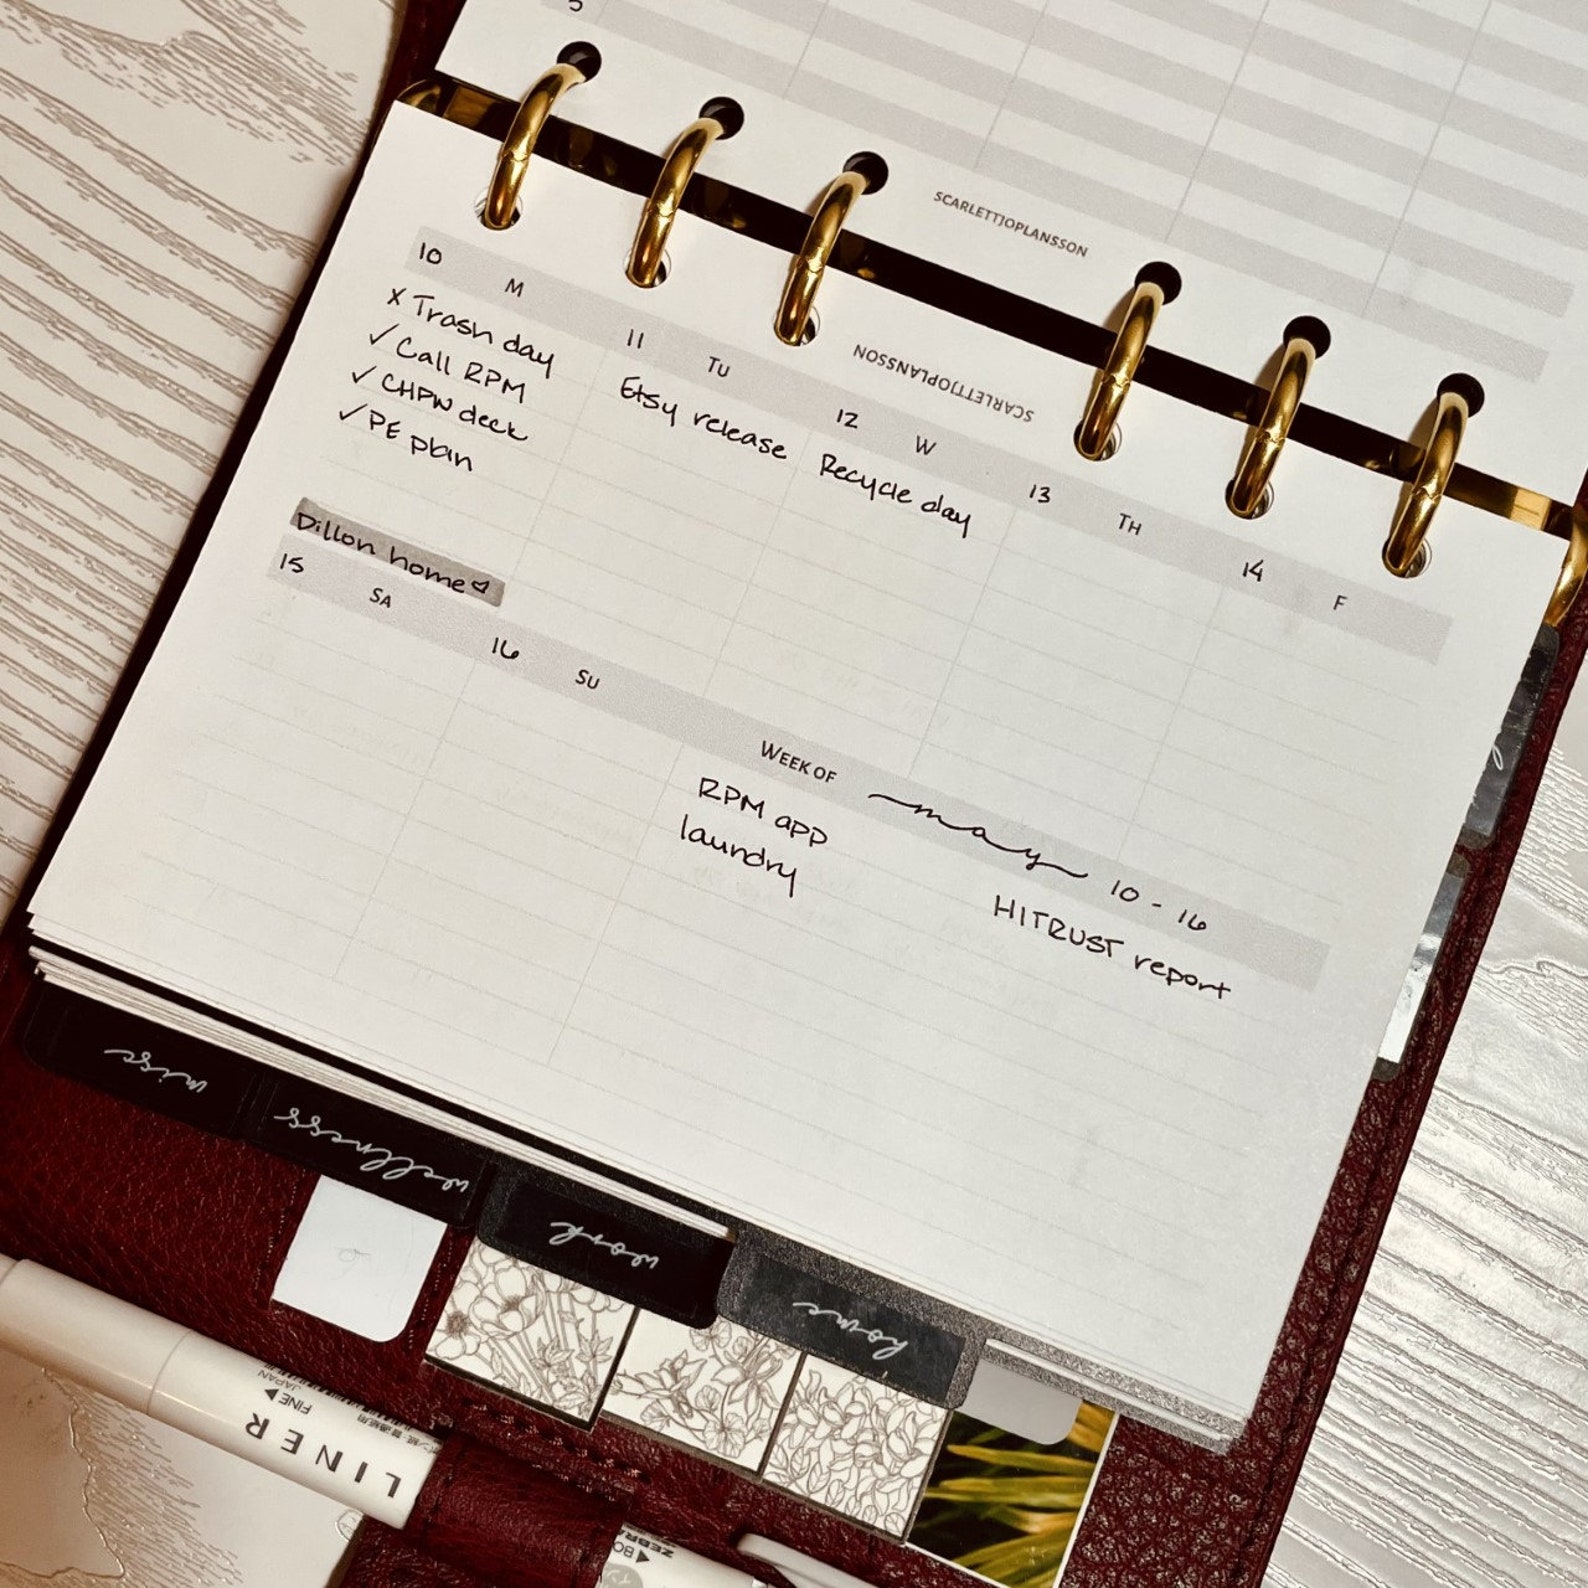 5
SCARLETTJOPLANSSON
SCARLETTJOPLANSSON
10 M
x Trash day
✓ Call RPM
✓ CHPW deck
✓ PE plan
Dillon home ♡
11 TU
Etsy release
12 W
Recycle day
13 TH
14 F
15 SA
16 SU
WEEK OF may 10 - 16
RPM app
laundry
HITRUST report
misc
wellness
work
home
LINER
FINE
JAPAN
ZEBRA